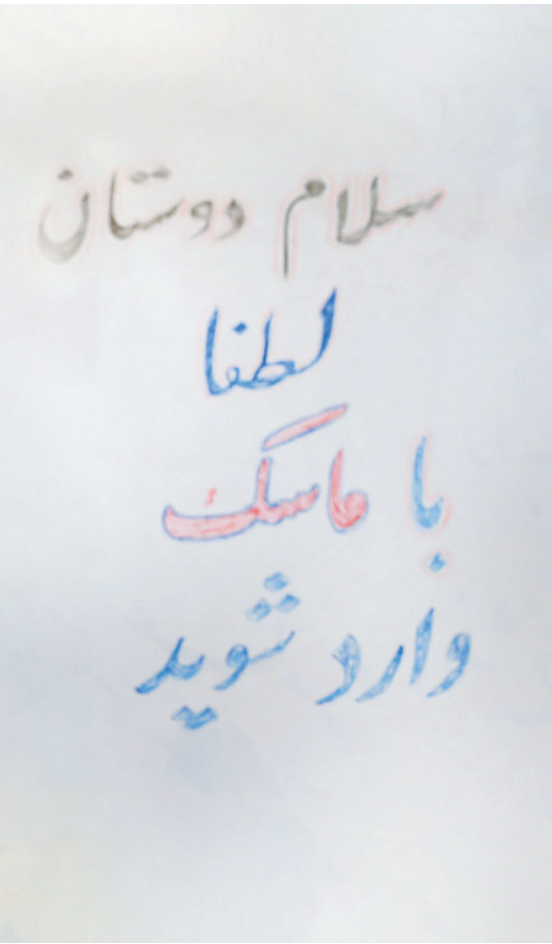 سلام دوستان
لطفا
با ماسک
وارد شوید